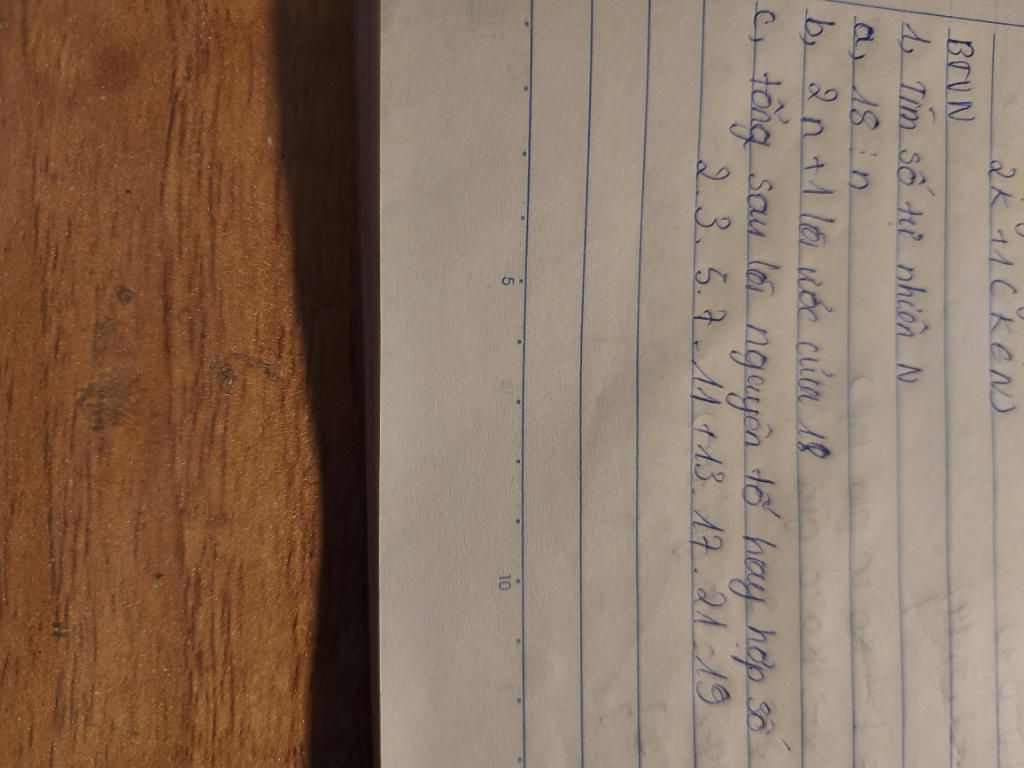 2k+1 ( k ∈ N)
BTVN
1, Tìm số tự nhiên N
a, 18 ⋮ n
b, 2n+1 là ước của 18
c, tổng sau là nguyên tố hay hợp số
2.3.5.7.11+13.17.21.19
5
10